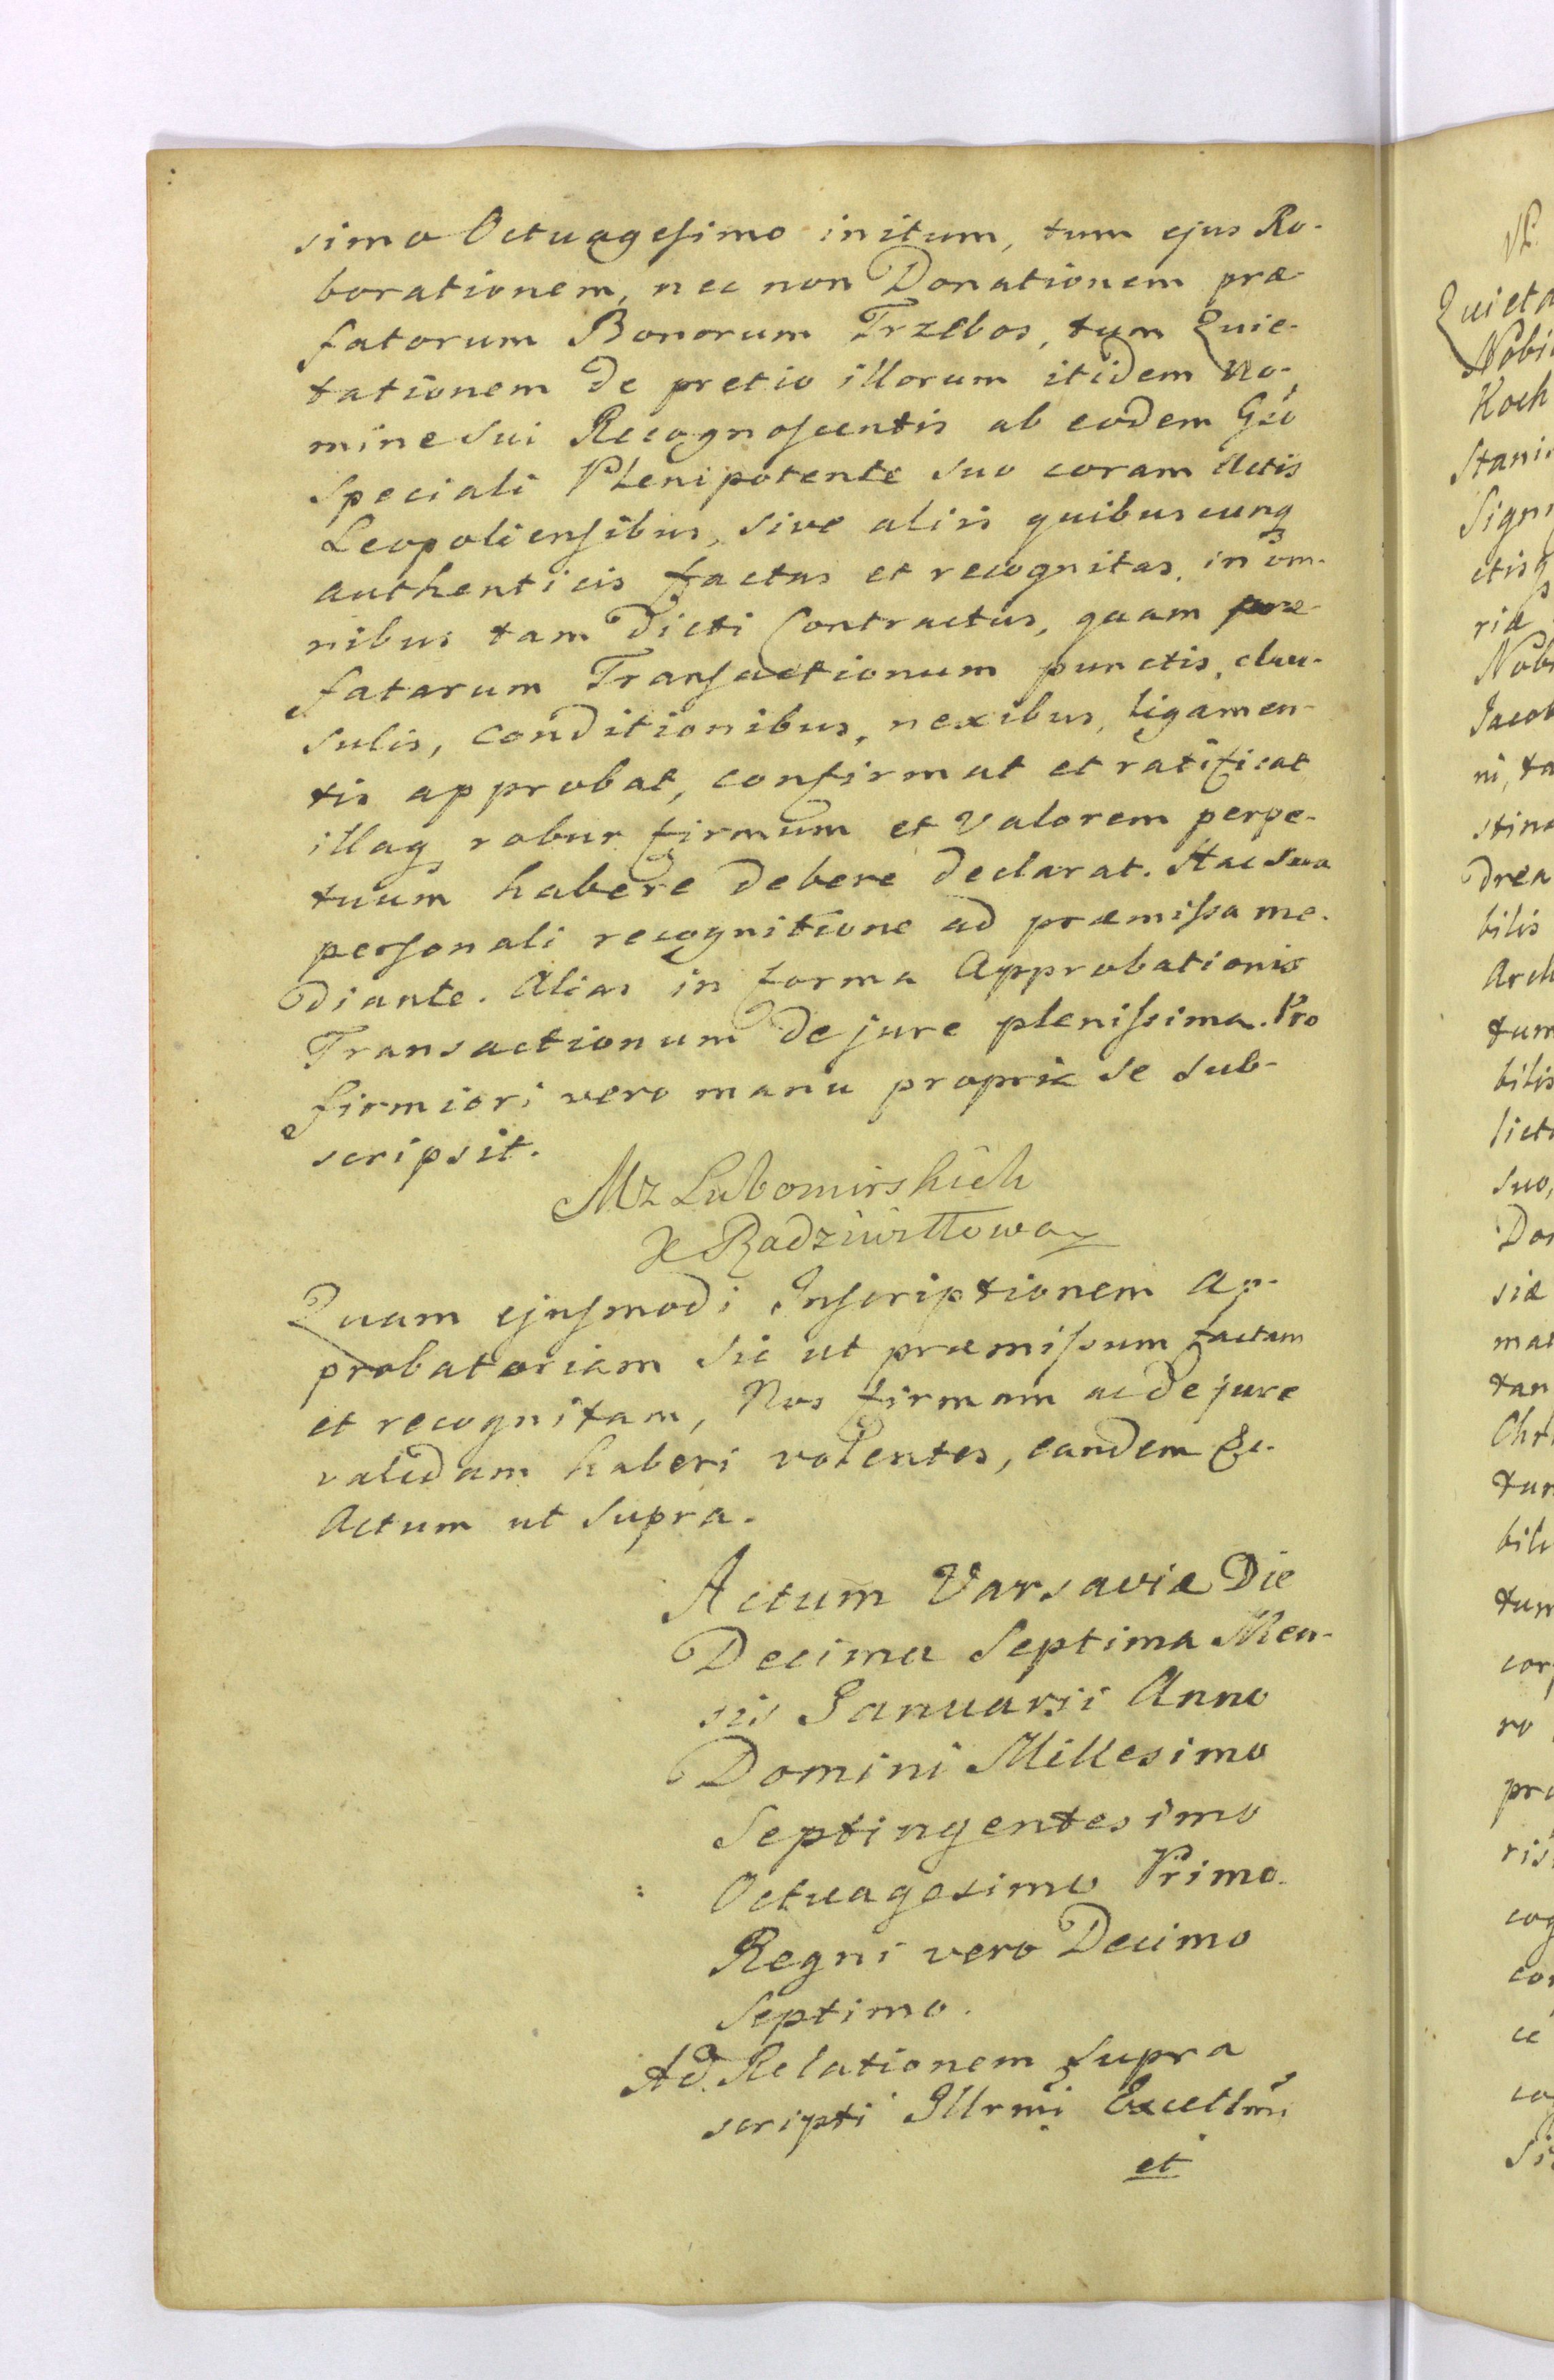 simo Octuagesimo initum, tum ejus Ro-
borationem, nec non Donationem præ
fatorum Bonorum Trzebos, tum Quie-
tationem de pretio illorum itidem No-
mine sui Recognoscentis ab eodem Gño
speciali Plenipotente suo coram Actis
Leopoliensibus, sive aliis quibuscunq
authenticis factas et recognitas, in om-
nibus tam dicti Contractus, quam præ-
fatarum Transactionum punctis, clau-
sulis, conditionibus, nexibus, ligamen-
tis approbat, confirmat et ratificat
illaq robur firmum et Valorem perpe-
tuum habere debere declarat. Hac sua
personali recognitione ad præmissa me-
diante. Alias in forma Approbationis
Transactionum de jure plenissima. Pro
firmiori vero manu propria se sub-
scripsit.
M z Lubomirskich
X Radziwiłłowa
Quam ejusmodi Inscriptionem Ap-
probatoriam sic ut præmissum factam
et recognitam, Nos firmam ac de jure
validam haberi volentes, eandem &c.
Actum ut supra.
Actum Varsaviæ Die
Decima Septima Men-
sis Januarii Anno
Domini Millesimo
Septingentesimo
Octuagesimo Primo.
Regni vero Decimo
Septimo.
Ad Relationem supra
scripti Illrmi Excellmi
et
Quieta
Koch
Stani
Sign
Nob
Jacob
ni, ta
stina
drea
bilis
Arch
tum
bilis
suo,
Do
siæ
mat
tan
Chr
tur
bili
tum
cor
ro
pro
ris
cog
co